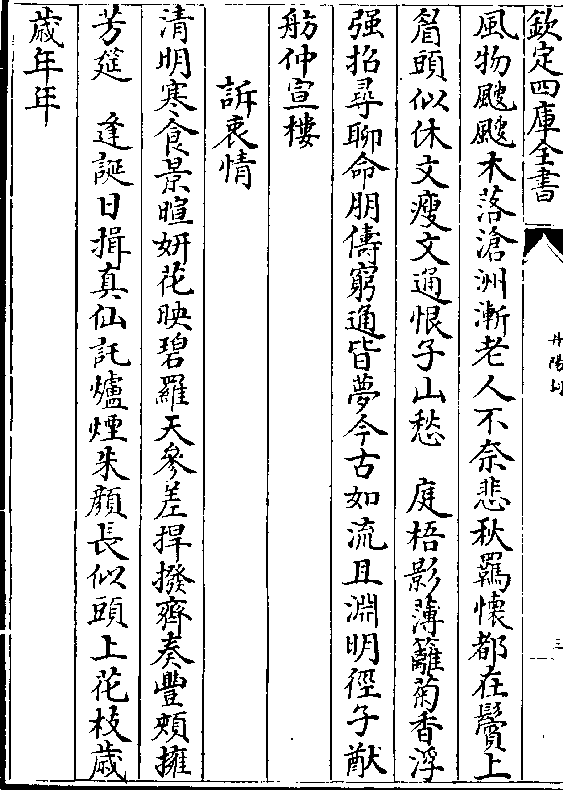 欽定四庫全書
風物颼颼木落滄洲漸老人不奈悲秋羈懷都在鬢上
眉頭似休文瘦文通恨子山愁　庭梧影薄籬菊香浮
强招尋聊命朋儔窮通皆夢今古如流且淵明徑子猷
舫仲宣樓
訴衷情
清明寒食景暄妍花映碧羅天參差捍撥齊奏豐頰擁
芳筵　逢誕日揖真仙託爐煙朱顔長似頭上花枝歳
歳年年
丹陽詞
三